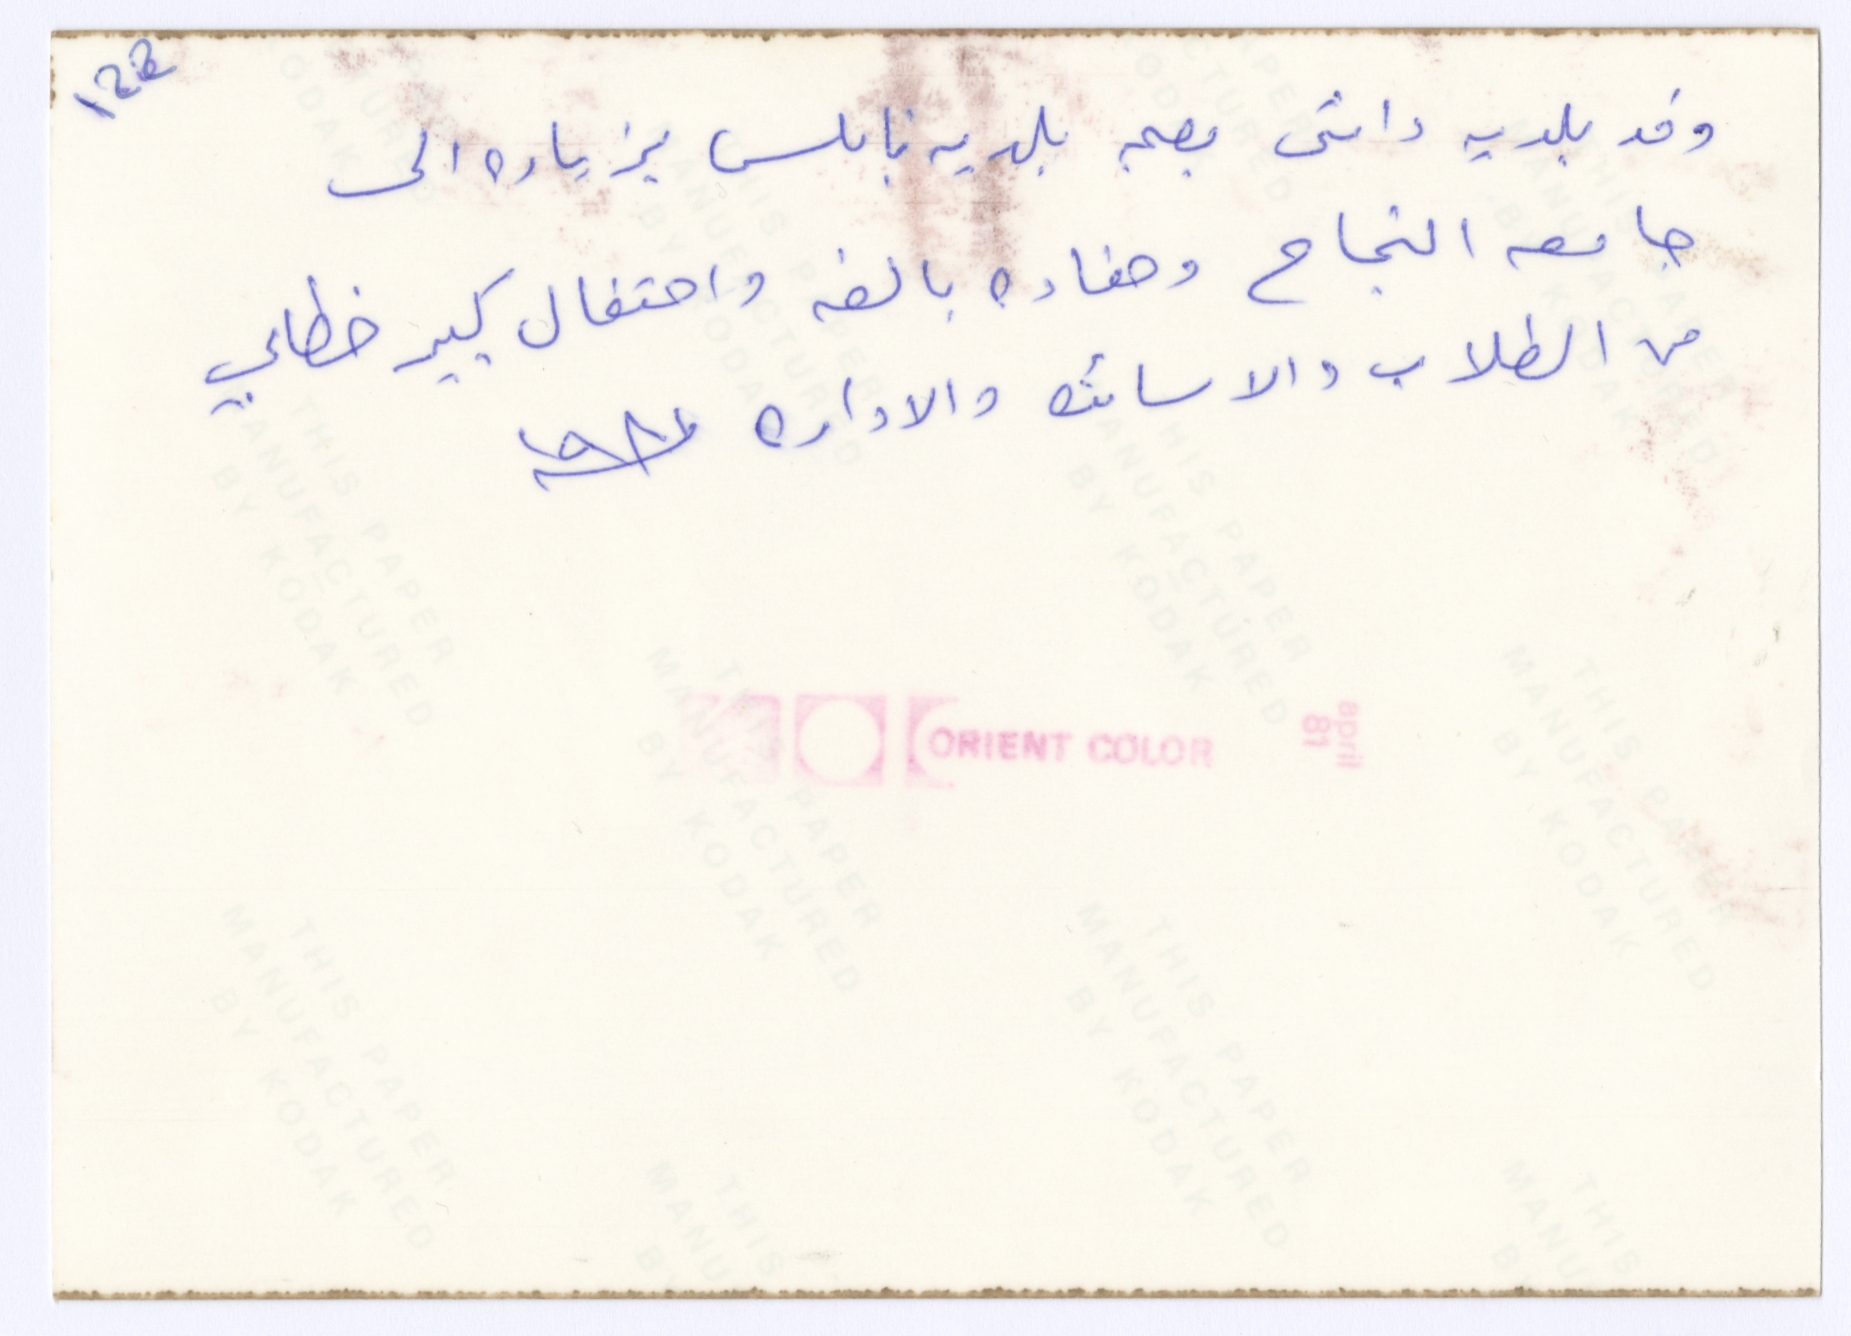 122
وفد بلديه دانتى بصحبه بلديه نابلس بزياره الى
جامعه النجاح وحفاوه بالغه واحتفال كبير خطابي
من الطلاب والاساتذه والاداره ١٩٨١
ORIENT COLOR
april 81
THIS PAPER
MANUFACTURED
BY KODAK